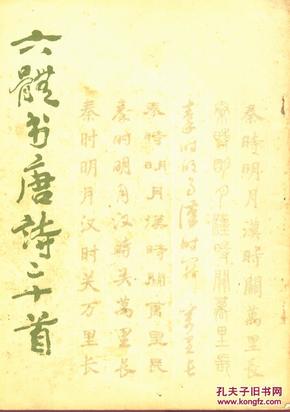 六體书唐詩二十首
秦時明月漢時關萬里長
秦時明月漢時關萬里長
秦时明月漢时關萬里長
秦時明月漢時關萬里長
秦时明月漢時关萬里長
秦时明月汉时关万里长
孔夫子旧书网
www.kongfz.com